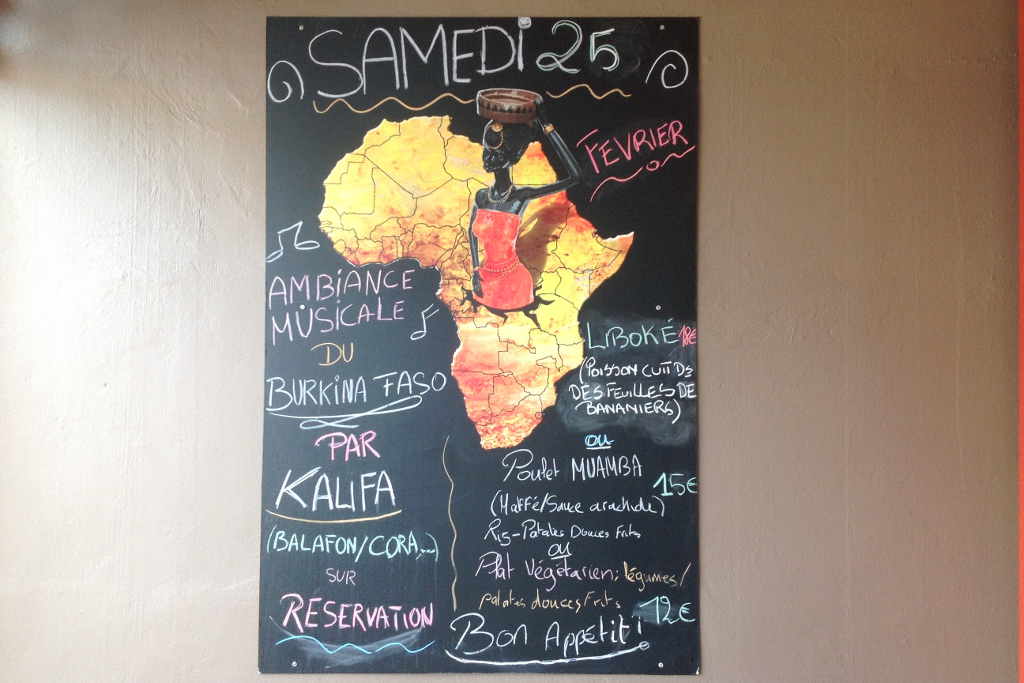 SAMEDI 25
FEVRIER
AMBIANCE
MUSICALE
DU
BURKINA FASO
PAR
KALIFA
(BALAFON/CORA,...)
SUR
RESERVATION
LIBOKÉ 18€
(POISSON CUIT DS
DES FEUILLES DE
BANANIERS)
ou
Poulet MUAMBA
15€
(Maffé/Sauce arachide)
Ris-Patates Douces Frits
ou
Plat Végétarien; légumes/
patates douces Frits
12€
Bon Appétit!